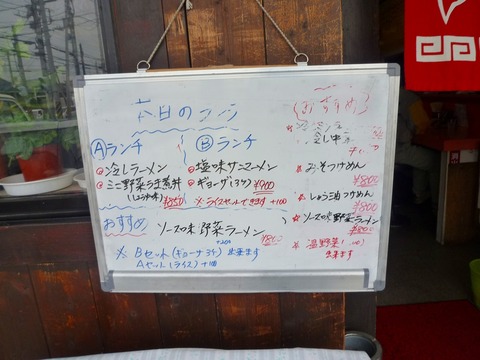 本日のランチ
Ⓐランチ
冷しラーメン
ミニ野菜うま煮丼
(しょうゆ味) ¥850
Ⓑランチ
塩味サンマーメン
ギョーザ(3ケ) ¥900
※ライスセットできます +100
おすすめ
ソース味 野菜ラーメン
¥800
※ Bセット(ギョーザ3ケ) 出来ます
Aセット(ライス) +100
(おすすめ)
みそつけめん
¥800
しょう油つけめん
¥800
ソース味野菜ラーメン
¥800
温野菜
出来ます